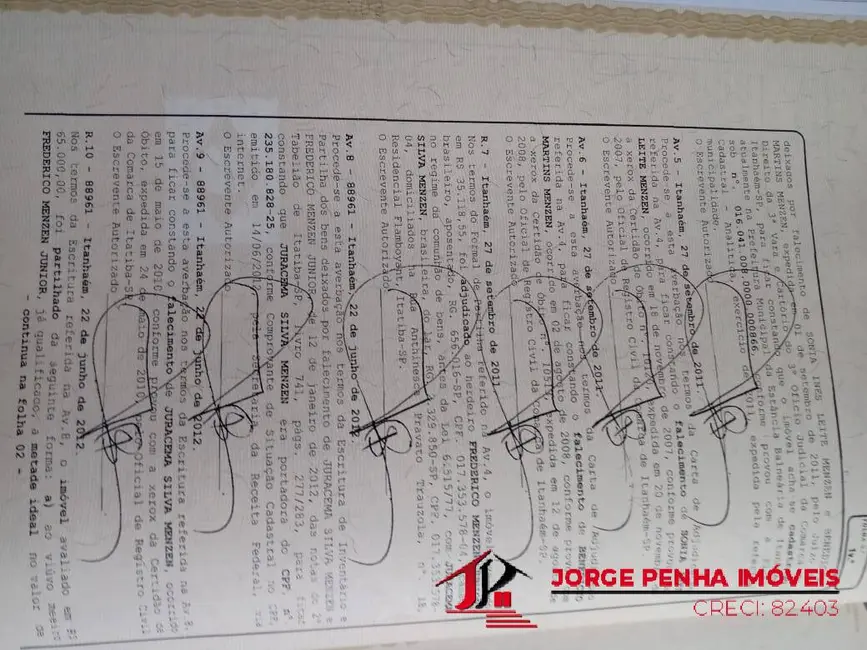 deixados por falecimento de SONIA INES LEITE MENZEN e
MARTINS MENZEN, expedida em 01 de setembro de 2011, pelo Juiz
Direito da 3ª Vara e Cartório do 3º Ofício Judicial da Comarca
Itanhaém-SP, para ficar constando que o imóvel acha se
atualmente na Prefeitura Municipal da Estância Balneária de
sob nº. 016.041.008.0000.000866, conforme provou com a
Cadastral Atualizada, exercício de 2011, expedida pela
municipalidade.
O Escrevente Autorizado
Av.5 - Itanhaém, 27 de setembro de 2011
Procede-se a esta averbação nos termos da Carta de
referida na Av.4, para ficar constando o falecimento de SONIA
LEITE MENZEN, ocorrido em 18 de novembro de 2007, conforme provou
a xerox da Certidão de Óbito nº expedida em 20 de novembro
2007, pelo Oficial de Registro Civil da Comarca de Itanhaém-SP.
O Escrevente Autorizado
Av.6 - Itanhaém, 27 de setembro de 2011.
Procede-se a esta averbação nos termos da Carta de
referida na Av.4, para ficar constando o falecimento de
MARTINS MENZEN, ocorrido em 02 de agosto de 2008, conforme
a xerox da Certidão de Óbito nº expedida em 12 de
2008, pelo Oficial de Registro Civil da Comarca de Itanhaém-SP.
O Escrevente Autorizado
R.7 - Itanhaém, 27 de setembro de 2011
Nos termos do Formal de Partilha referido na Av.4, o imóvel
em R$ 35.118,55, foi adjudicado ao herdeiro FREDERICO
brasileiro, aposentado, RG. CPF. 017.353.578-04,
no regime da comunhão de bens, antes da Lei 6.515/77, com
SILVA MENZEN, brasileira, do lar, RG. CPF.
04, domiciliados na Rua Anthinesca Pravato Trauzola, nº 18,
Residencial Flamboyant, Itatiba-SP.
O Escrevente Autorizado
Av.8 - 88961 - Itanhaém, 22 de junho de 2012.
Procede-se a esta averbação nos termos da Escritura de Inventário e
Partilha dos bens deixados por falecimento de JURACEMA SILVA MENZEN e
FREDERICO MENZEN JUNIOR, de 12 de janeiro de 2012, das notas do 2º
Tabelião de Itatiba-SP, livro 741, págs. 277/283, para ficar
constando que JURACEMA SILVA MENZEN era portadora do CPF nº
235.180.828-25, conforme Comprovante de Situação Cadastral no CPF,
emitido em 14/06/2012, pela Secretaria da Receita Federal, via
internet.
O Escrevente Autorizado
Av.9 - 88961 - Itanhaém, 22 de junho de 2012
Procede-se a esta averbação nos termos da Escritura referida na Av.8,
para ficar constando o falecimento de JURACEMA SILVA MENZEN, ocorrido
em 15 de maio de 2010, conforme provou com a xerox da Certidão de
Óbito, expedida em 24 de maio de 2010, pelo Oficial de Registro Civil
da Comarca de Itatiba-SP.
O Escrevente Autorizado
R.10 - 88961 - Itanhaém 22 de junho de 2012
Nos termos da Escritura referida na Av.8, o imóvel avaliado em R$
65.000,00, foi partilhado da seguinte forma: a) ao viúvo meeiro
FREDERICO MENZEN JUNIOR, já qualificado, a metade ideal no valor de
- continua na folha 02 -
JORGE PENHA IMÓVEIS
CRECI: 82.403